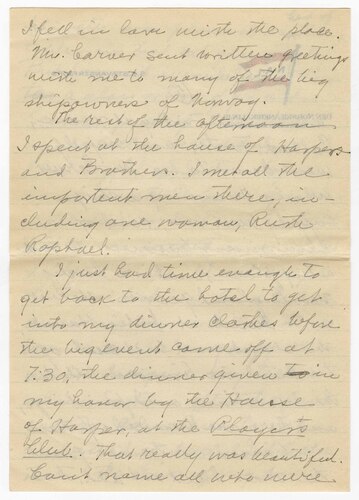 I fell in love with the place.
Mr. Carver sent written greetings
with me to many of the big
shipowners of Norway.
The rest of the afternoon
I spent at the house of Harpers
and Brothers. I met all the
important men there, in-
cluding one woman, Ruth
Raphael.
I just had time enough to
get back to the hotel to get
into my dinner clothes before
the big event came off at
7:30, the dinner given in
my honor by the House
of Harper, at the Player's
Club. That really was beautiful.
Can't name all who were